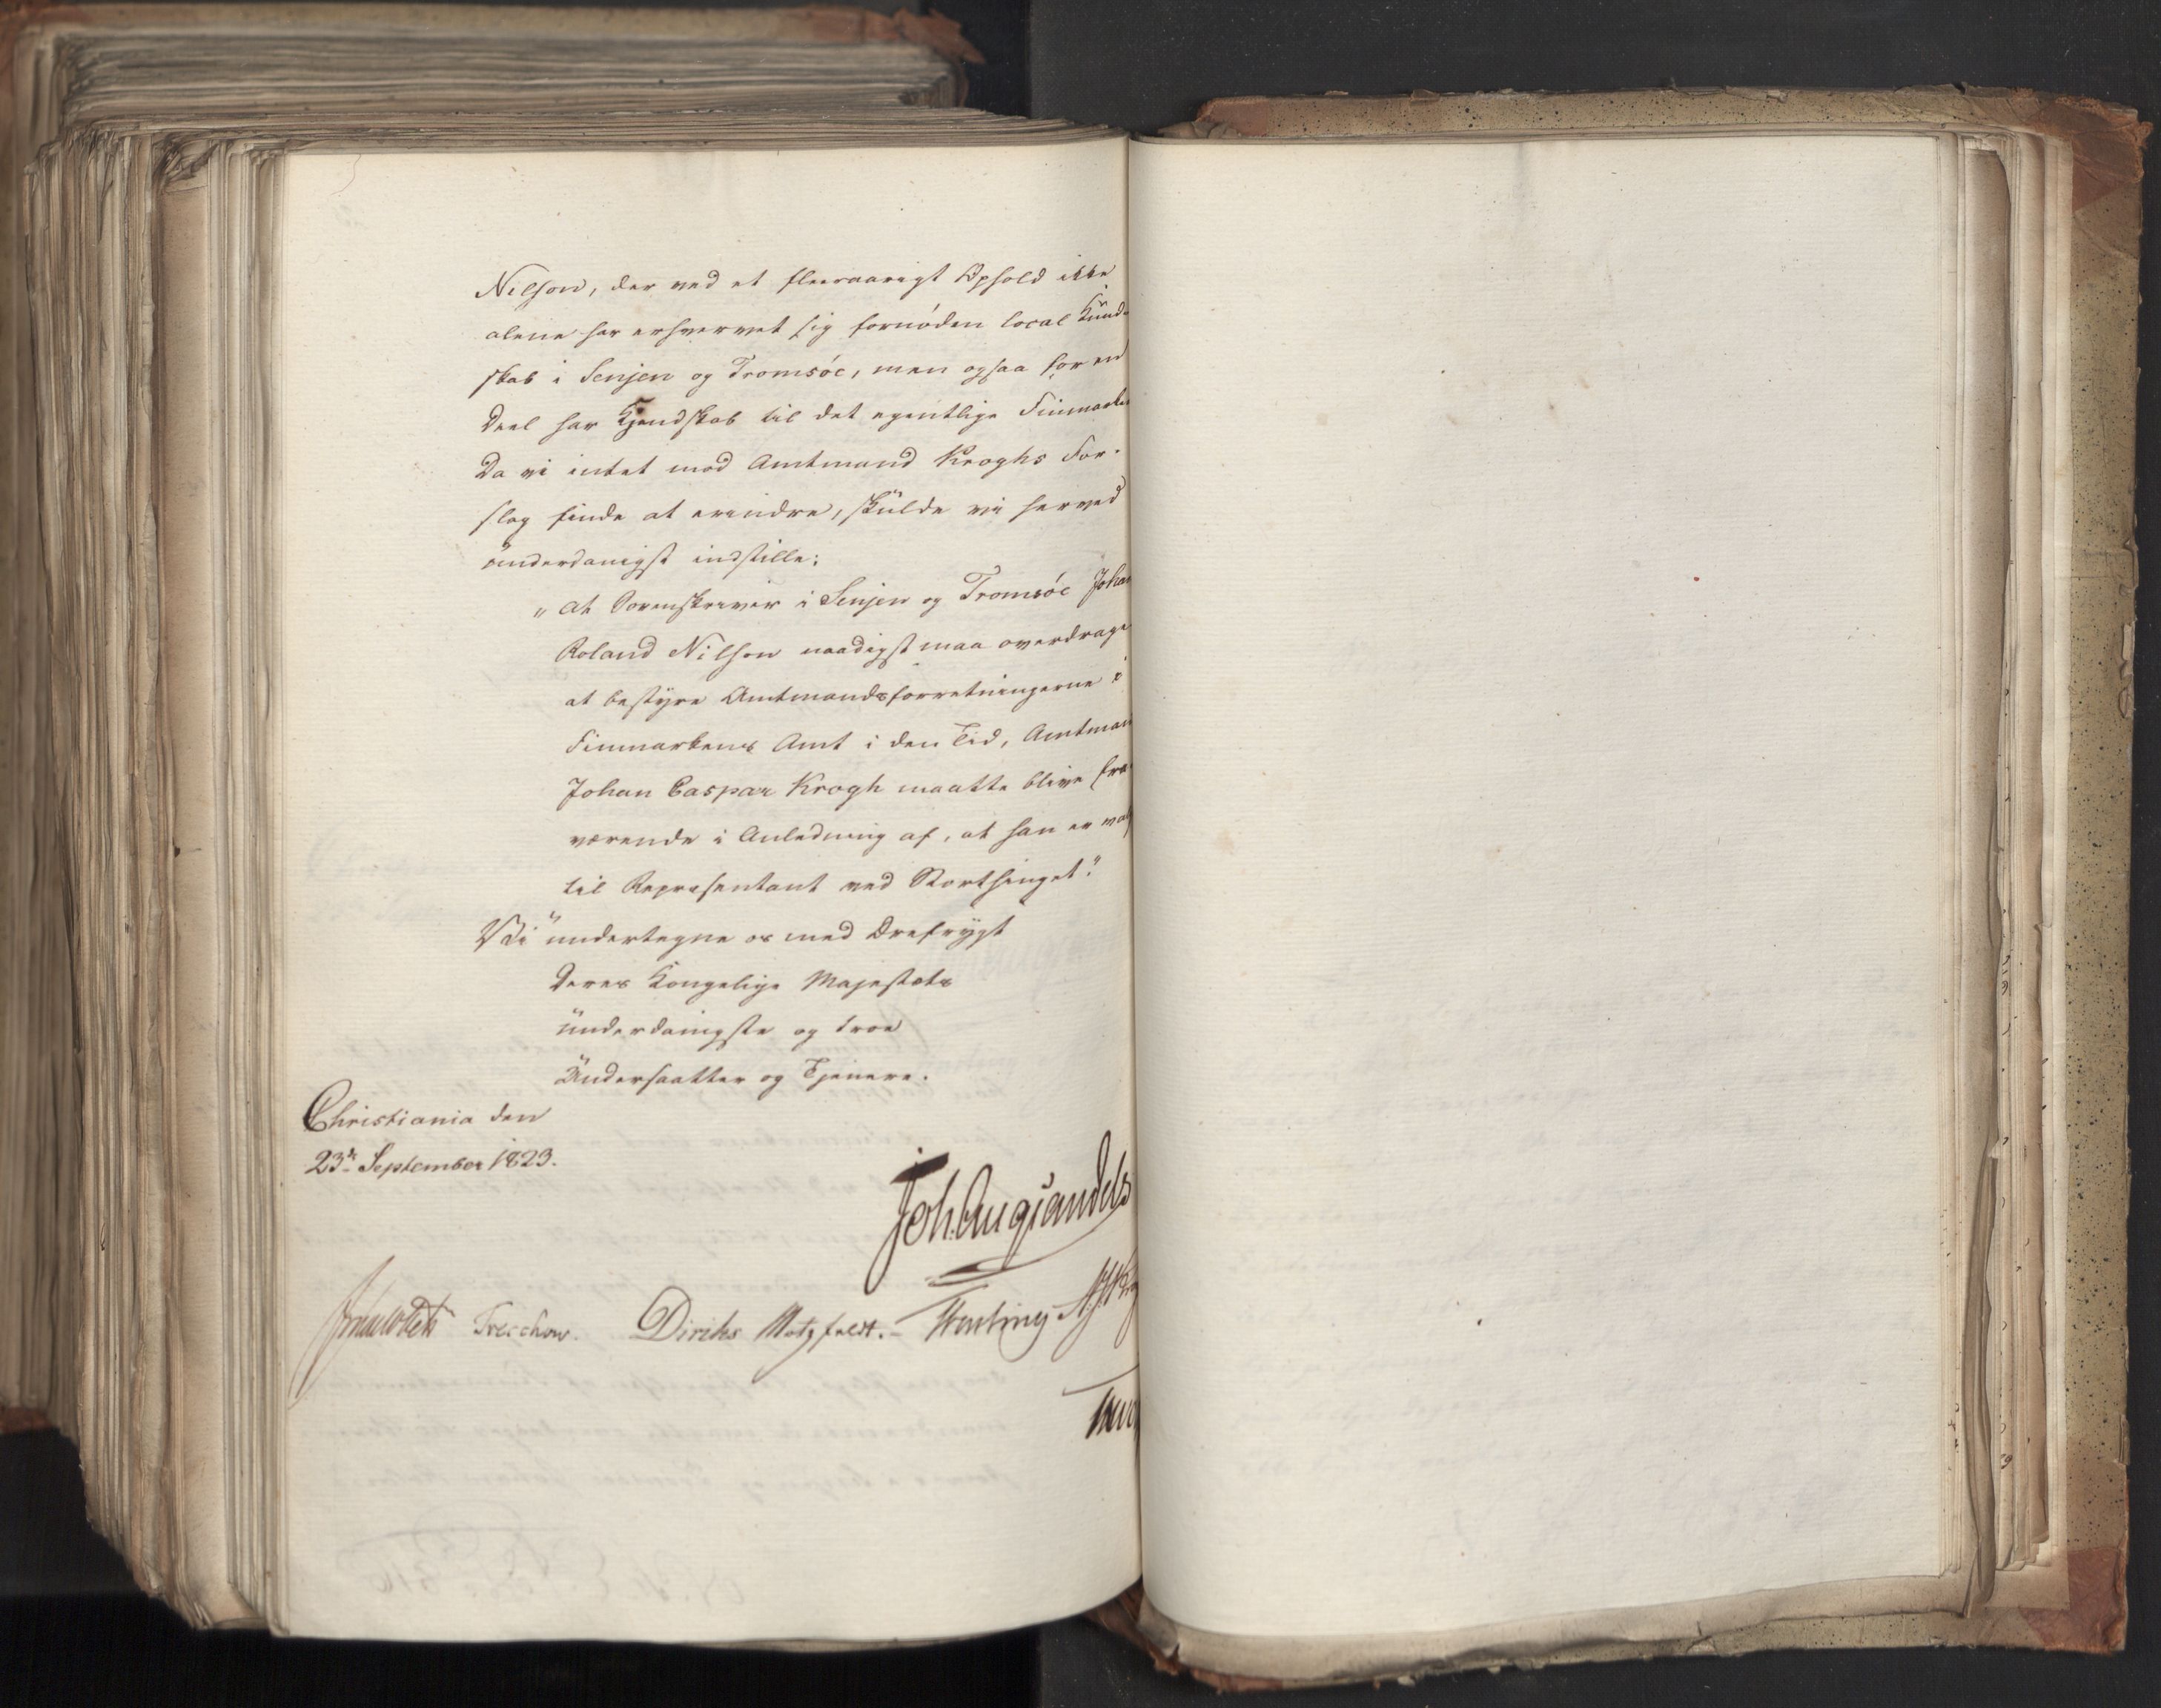 Nilson, der ved et fleeraarigt Ophold ikke
alene har erhvervet sig fornöden local Kund-
skab i Senjen og Tromsöe, men ogsaa for en
Deel har Kjendskab til det egentlige Finmarken
Da vi intet mod Amtmand Kroghs For-
slag finde at erindre, skulde vi herved
underdanigst indstille:
"At Sorenskriver i Senjen og Tromsöe Johan
Roland Nilson naadigst maa overdrages
at bestyre Amtmandsforretningerne i
Finmarkens Amt i den Tid, Amtmand
Johan Caspar Krogh maatte blive fra-
værende i Anledning af, at han er valgt
til Repræsentant ved Storthinget."
Vi undertegne os med Ærefrygt
Deres Kongelige Majestæts
underdanigste og troe
Undersaatter og Tjenere.
Christiania den
23de September 1823.
Joh: Aug: Sandels
Treschow. Diriks Motzfeldt.